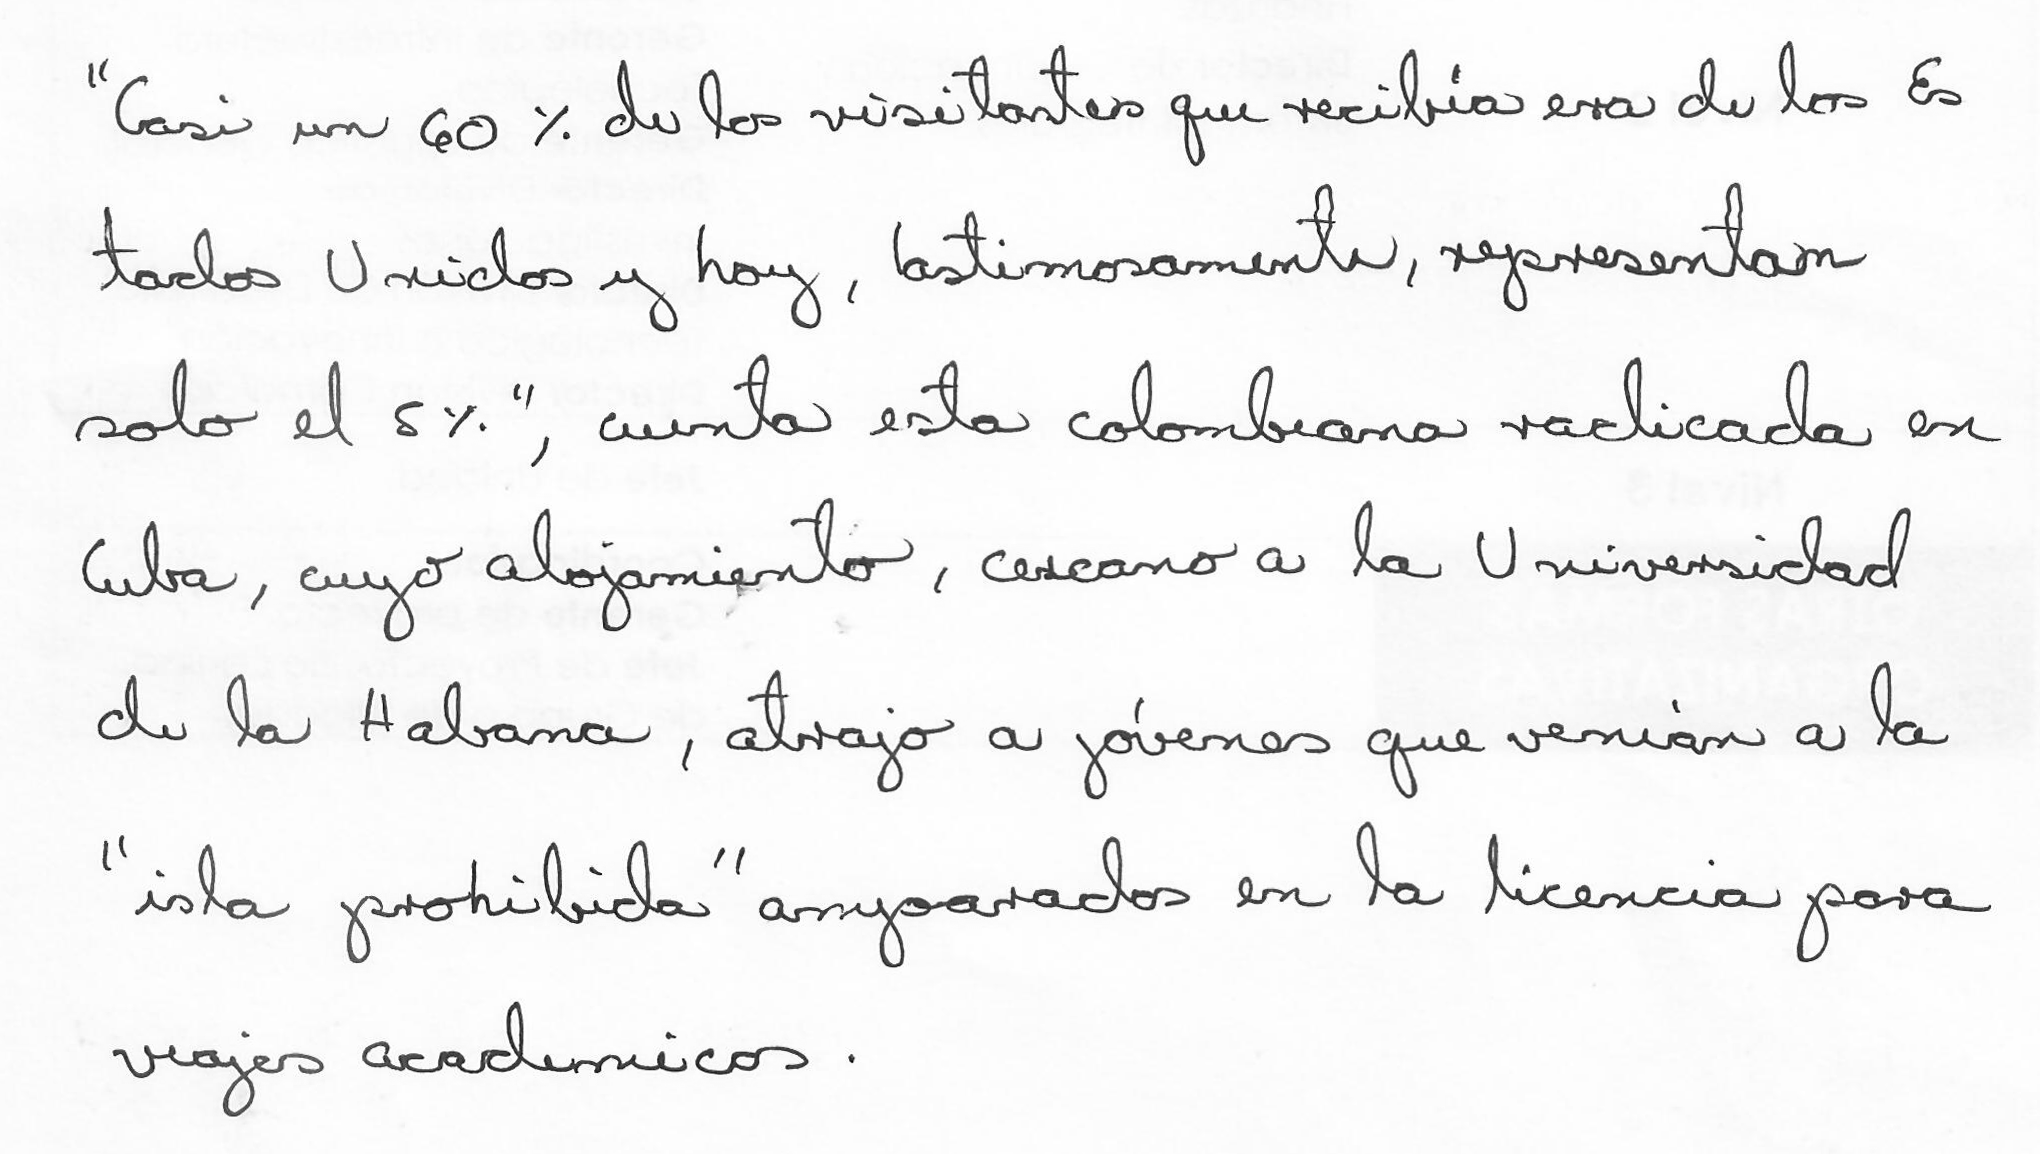 "Casi un 60 % de los visitantes que recibía era de los Es
tados Unidos y hoy, lastimosamente, representan
solo el 5%.", cuenta esta colombiana radicada en
Cuba, cuyo alojamiento, cercano a la Universidad
de la Habana, atrajo a jóvenes que venían a la
"isla prohibida" amparados en la licencia para
viajes academicos.